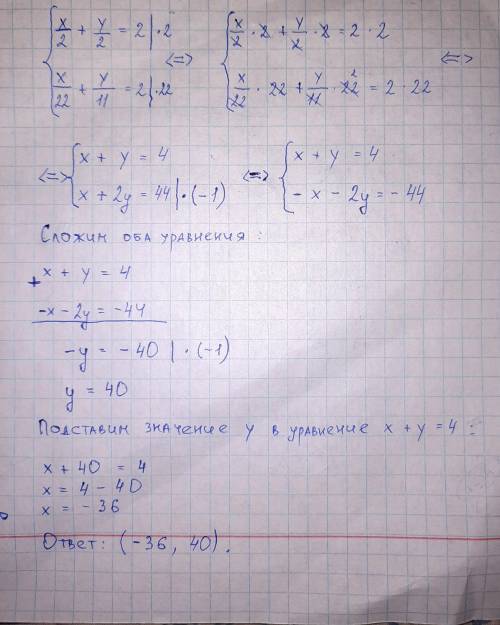 { x/2 + y/2 = 2 | · 2
x/22 + y/11 = 2 | · 22 <=> { x/2 · 2 + y/2 · 2 = 2 · 2
x/22 · 22 + y/11 · 22 2 = 2 · 22 <=>
<=> { x + y = 4
x + 2y = 44 | · (-1) <=> { x + y = 4
- x - 2y = - 44
Сложим оба уравнения :
+ x + y = 4
-x - 2y = -44
-y = - 40 | · (-1)
y = 40
Подставим значение y в уравнение x + y = 4 :
x + 40 = 4
x = 4 - 40
x = - 36
Ответ: (-36, 40).